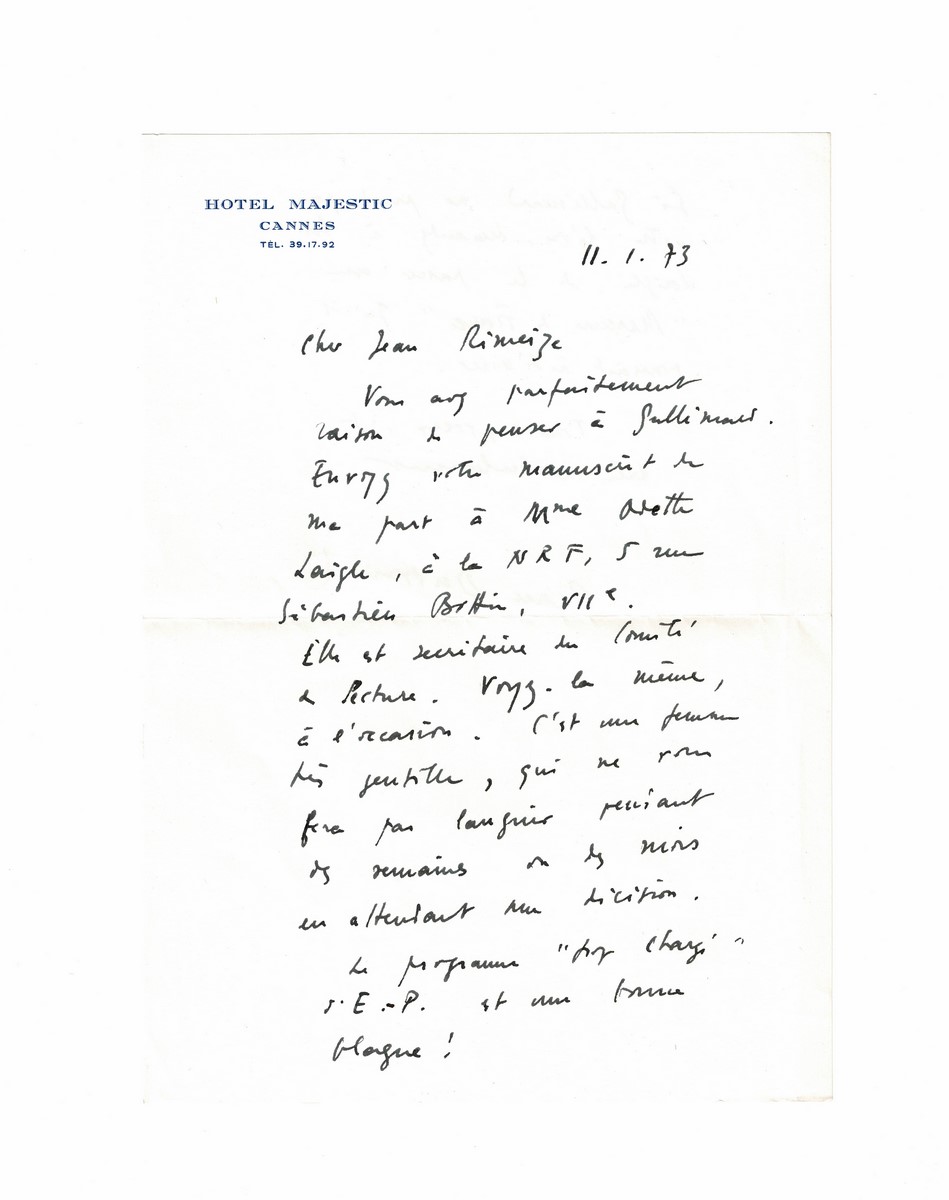 HOTEL MAJESTIC
CANNES
TÉL. 39.17.92
11. 1. 73
Cher Jean Rimeize
Vous avez parfaitement
raison de penser à Gallimard.
Envoyez votre manuscrit de
ma part à Mme Odette
Laigle, à la NRF, 5 rue
Sébastien Bottin, VIIe.
Elle est secrétaire du Comité
de lecture. Voyez-la même,
à l'occasion. C'est une femme
très gentille, qui ne vous
fera pas languir pendant
des semaines ou des mois
en attendant une décision.
Le programme "trop chargé"
d'E.-P. est une bonne
blague !